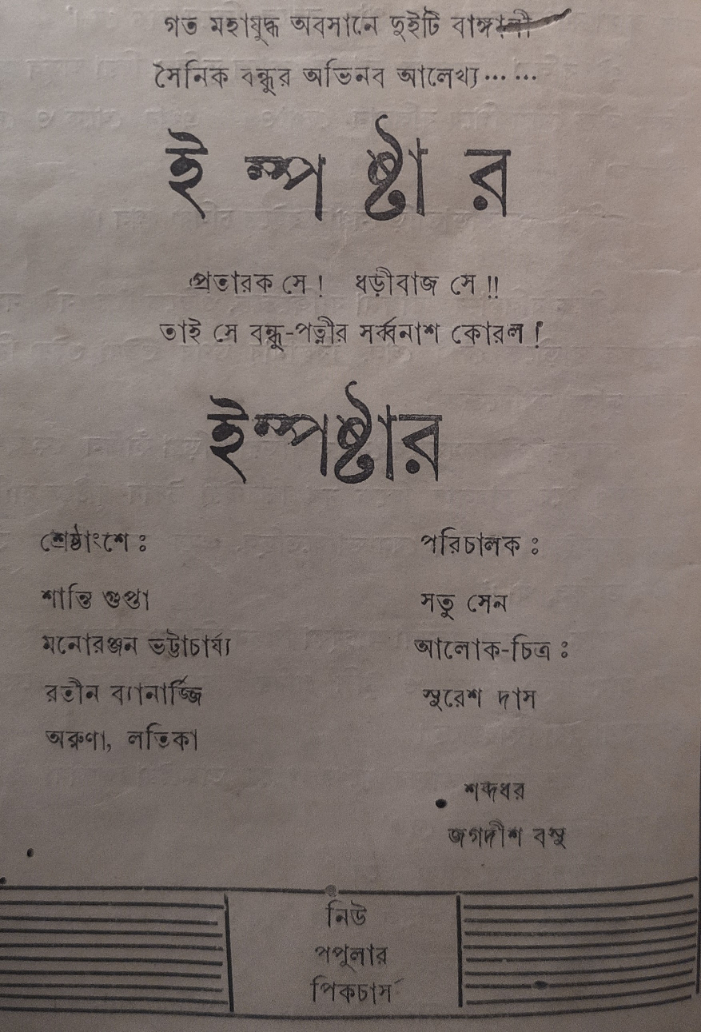 গত মহাযুদ্ধ অবসানে দুইটি বাঙ্গালী
সৈনিক বন্ধুর অভিনব আলেখ্য... ...
ইম্পষ্টার
প্রতারক সে! ধড়ীবাজ সে!!
তাই সে বন্ধু-পত্নীর সর্ব্বনাশ কোরল!
ইম্পষ্টার
শ্রেষ্ঠাংশে :
শান্তি গুপ্তা
মনোরঞ্জন ভট্টাচার্য্য
রতীন ব্যানার্জ্জি
অরুণা, লতিকা
পরিচালক :
সতু সেন
আলোক-চিত্র :
সুরেশ দাস
শব্দধর
জগদীশ বসু
নিউ
পপুলার
পিকচার্স